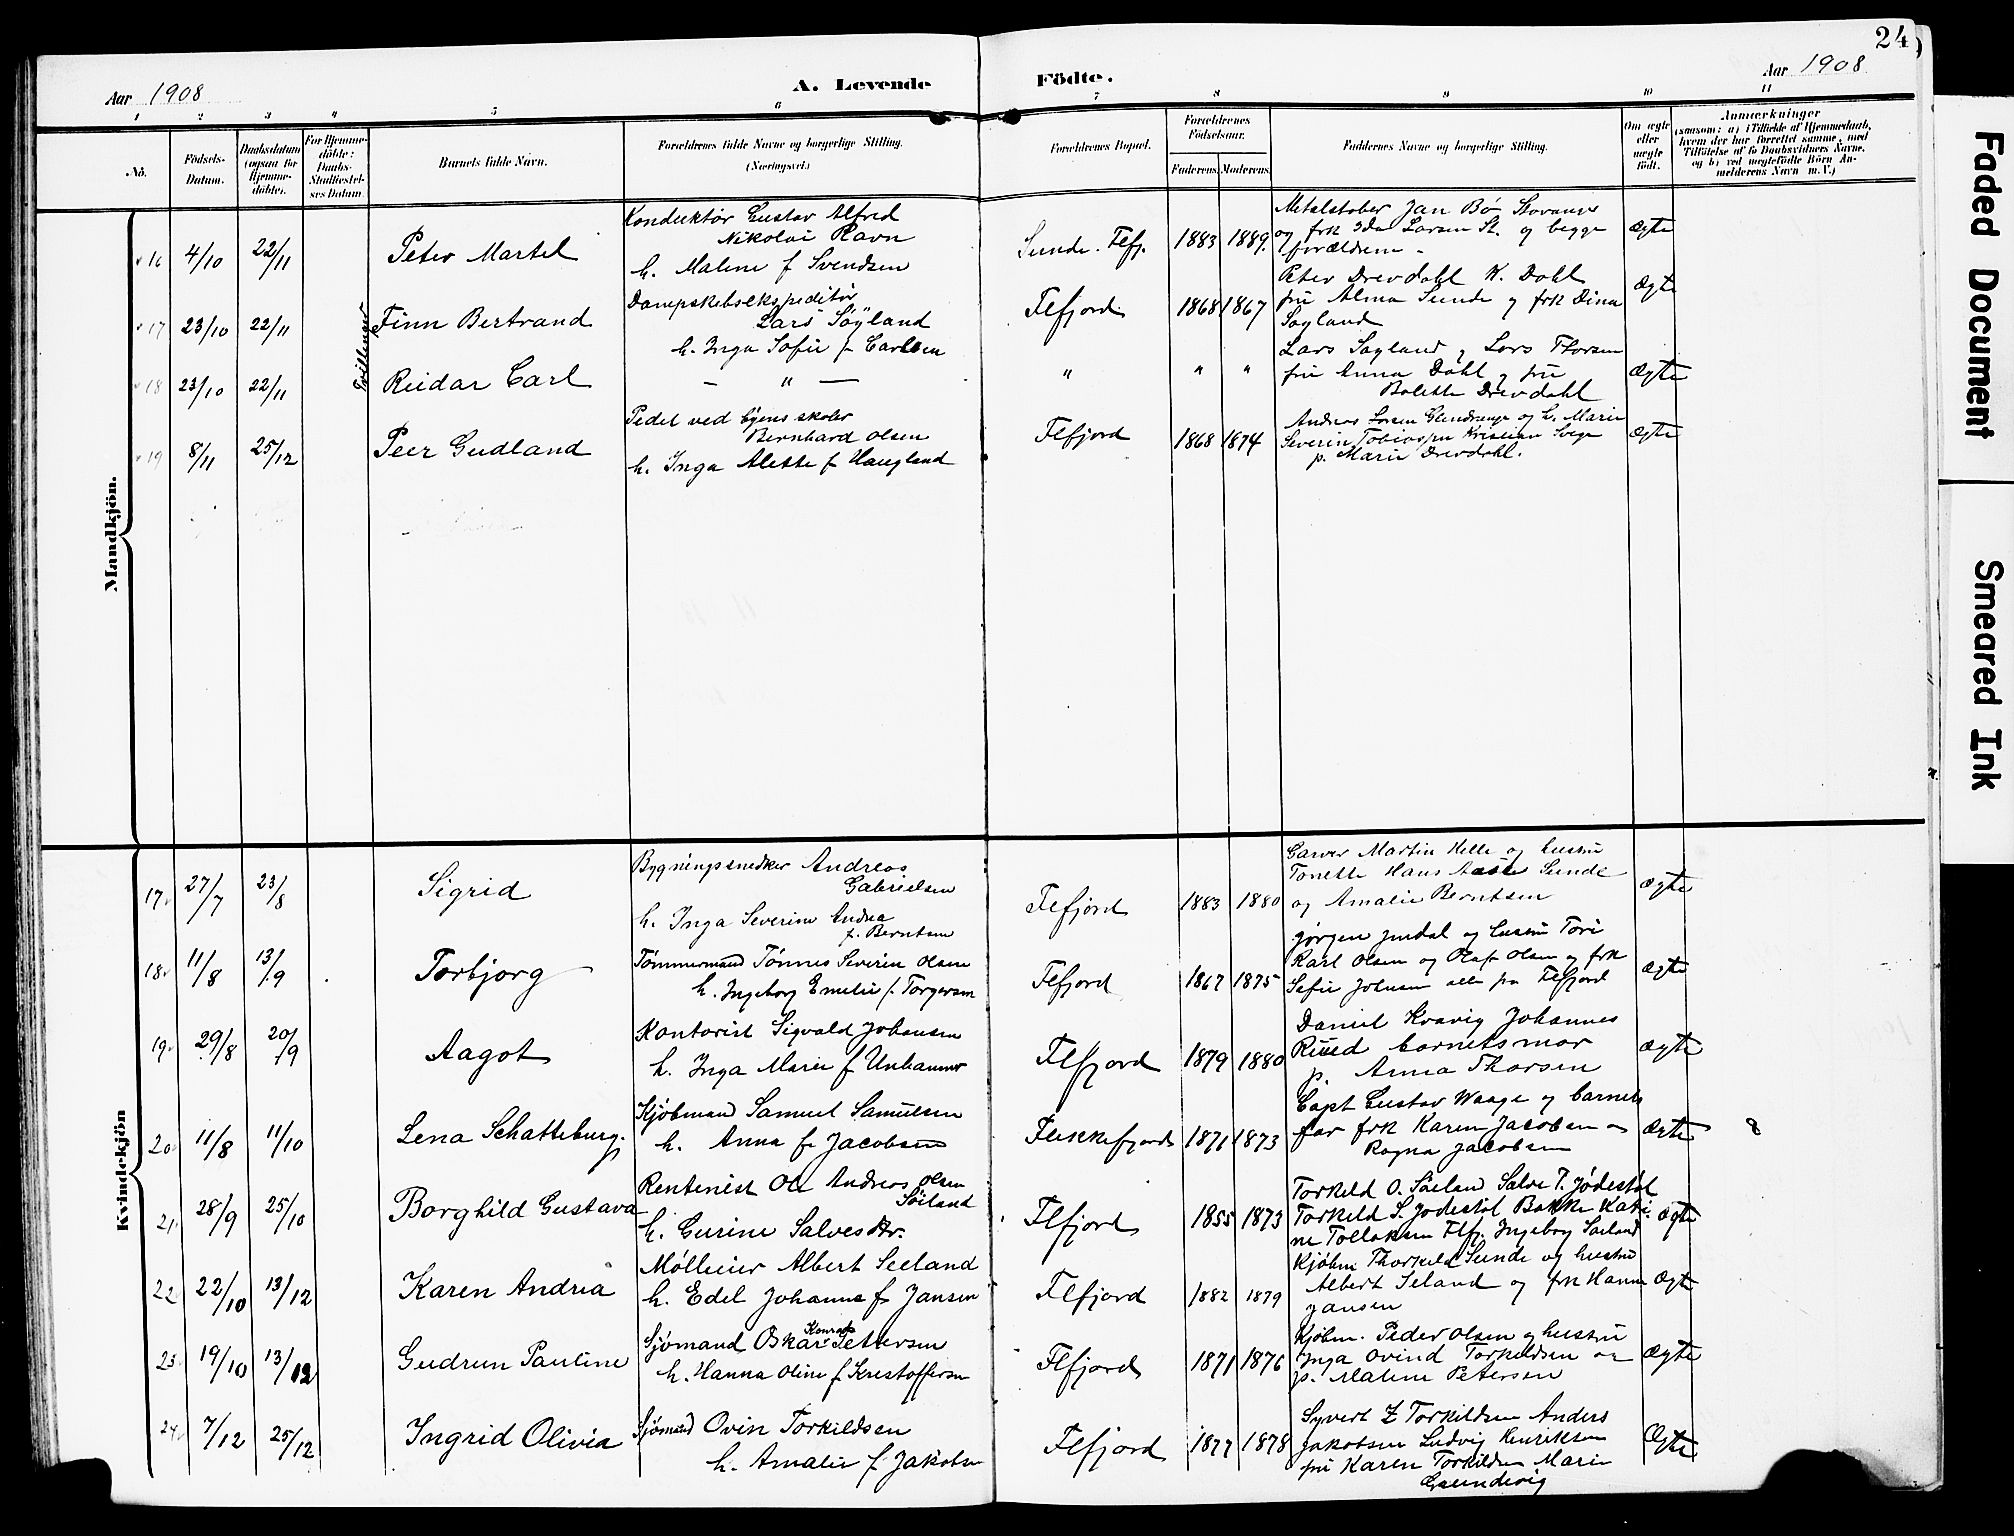 24
Aar 1908
A. Levende Födte.
Aar 1908
1 2 3 4 5 6 7 8 9 10 11
No.
Födsels-Datum.
Daabsdatum (ogsaa for Hjemme-döbte).
For Hjemme-döbte: Daabs-Stadfæstel-ses Datum
Barnets fulde Navn.
Forældrenes fulde Navne og borgerlige Stilling. (Næringsvei.)
Forældrenes Bopæl.
Forældrenes Födselsaar.
Faderens. Moderens.
Faddernes Navne og borgerlige Stilling.
Om ægte eller uægte födt.
Anmærkninger
(saasom: a) i Tilfælde af Hjemmedaab, hvem der har forrettet samme, med Tilføielse af to Daabsvidners Navne, og b) ved uægtefödte Börn Anmelderens Navn m. V.)
Mandkjön.
16 4/10 22/11 Peter Martel
Konduktör Gustav Alfred
Nikolai Ravn
h. Malene f Svendsen
Sunde. Flfj. 1883 1889.
Metalstøber Jan Bö Stavanger
og frk Ida Larsen St. og begge
forældrene -
Ægte
17 23/10 22/11 Tvillinger Finn Bertrand
Dampskibsekspeditör
Lars Söyland
h. Inga Sofie f Carlsen
Flfjord 1868 1867
Peter Drevdahl K. Dahl
fru Alma Sunde og frk Dina
Søyland
Ægte
18 23/10 22/11 Reidar Carl
— " —
" " "
Lars Søyland og Lars Thorsen
fru Anna Dahl og fru
Bolette Drevdahl
Ægte
19 8/11 25/12 Peer Gudland
Pedel ved byens skoler
Bernhard Olsen
h. Inga Alette f Haugland
Flfjord 1868 1874
Andreas Larsen og h. Marie
Severin Tobiassen Kristian Svege
p. Marie Drevdahl.
Ægte
Kvindekjön
17 27/7 23/8 Sigrid
Bygningssnedker Andreas
Gabrielsen
h. Inga Severine Andrea
f. Berntsen
Flfjord 1883 1880
Garver Martin Helle og hustru
Tonette Hans Aaste Sunde
og Amalie Berntsen
Ægte
18 11/8 13/9 Torbjorg
Tömmermand Tönnes Severin Olsen
h. Ingeborg Emelie f. Torgersen
Flfjord 1867 1875
Jørgen Jerdal og hustru Tori
Karl Olsen og Olaf Olsen og frk
Sofie Johnsen alle fra Flfjord
Ægte
19 29/8 20/9 Aagot
Kontorist Sigvald Johansen
h. Inga Marie f Unhammer
Flfjord 1879 1880
Daniel Kvavig Johannes
Ruud barnets mor
p. Anna Thorsen
Ægte
20 11/8 11/10 Lena Schatteburg.
Kjöbmand Samuel Samuelsen
h. Anna f Jacobsen
Flekkefjord 1871 1873
Capt Gustav Waage og barnets
far frk Karen Jacobsen og
Ragna Jacobsen
Ægte 8
21 28/9 25/10 Borghild Gustava
Rentenist Ole Andreas Olsen
Söiland
h. Gurine Salvesdtr.
Flfjord 1855 1873
Torkeld O. Söiland Salve T. Jødestøl
Torkeld S. Jødestøl Bakke Katri-
ne Tollaksen Flfj. Ingeborg Søiland
Ægte
22 22/10 13/12 Karen Andrea
Mölleier Albert Seeland
h. Edel Johanne f Jansen
Flfjord 1882 1879
Kjöbm Thorkeld Sunde og hustru
Albert Seland og frk Hanna
Jansen
Ægte
23 19/10 13/12 Gudrun Pauline
Sjömand Oskar Konrad Pettersen
h. Hanna Oline f Kristoffersen
Flfjord 1871 1876
Kjöbm. Peder Olsen og hustru
Inga Ovind Torkildsen og
p. Malene Petersen
Ægte
24 7/12 25/12 Ingrid Olivia
Sjömand Ovin Torkildsen
h. Amalie f Jakobsen
Flfjord 1877 1878
Syvert Z Torkildsen Anders
Jakobsen Ludvig Henriksen
fru Karen Torkildsen Marie
Grundevig
Ægte
Faded Document
Smeared Ink